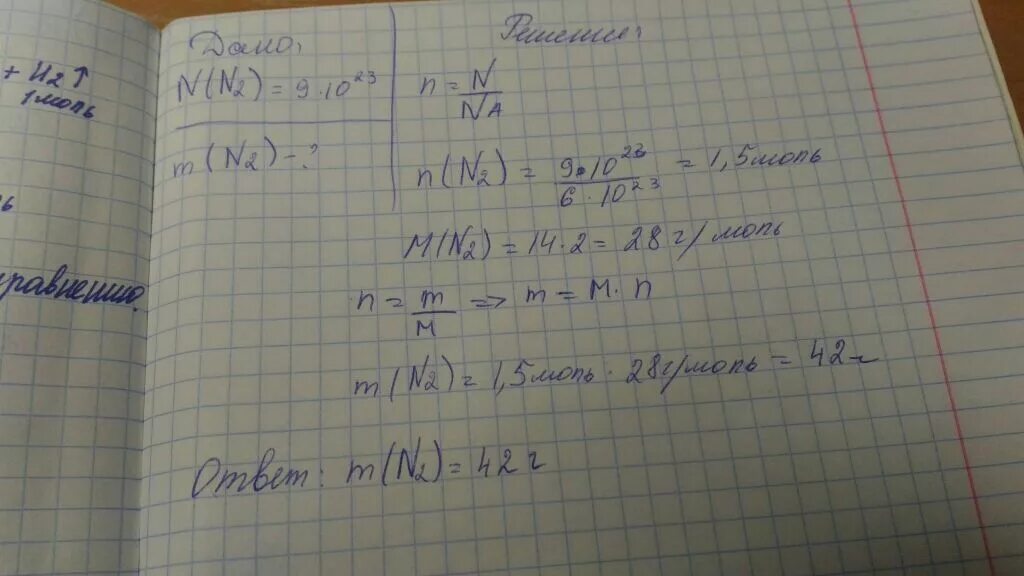 + H2↑
1 моль
ь
уравнению.
Дано:
N(N2) = 9·10^23
m(N2) - ?
Решение:
n = N/NA
n(N2) = 9·10^23/6·10^23 = 1,5 моль
M(N2) = 14·2 = 28 г/моль
n = m/M => m = M·n
m(N2) = 1,5 моль · 28 г/моль = 42 г
Ответ: m(N2) = 42 г